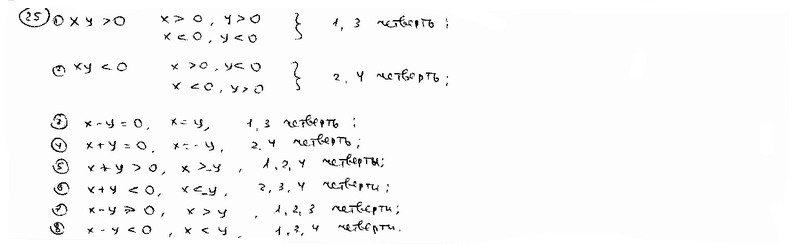 25 ① xy > 0 x > 0, y > 0 } 1, 3 четверть;
x < 0, y < 0
② xy < 0 x > 0, y < 0 } 2, 4 четверть;
x < 0, y > 0
③ x - y = 0, x = y, 1, 3 четверть;
④ x + y = 0, x = -y, 2, 4 четверть;
⑤ x + y > 0, x > -y, 1, 2, 4 четверты;
⑥ x + y < 0, x < -y, 2, 3, 4 четверти;
⑦ x - y > 0, x > y, 1, 2, 3 четверти;
⑧ x - y < 0, x < y, 1, 3, 4 четверти.